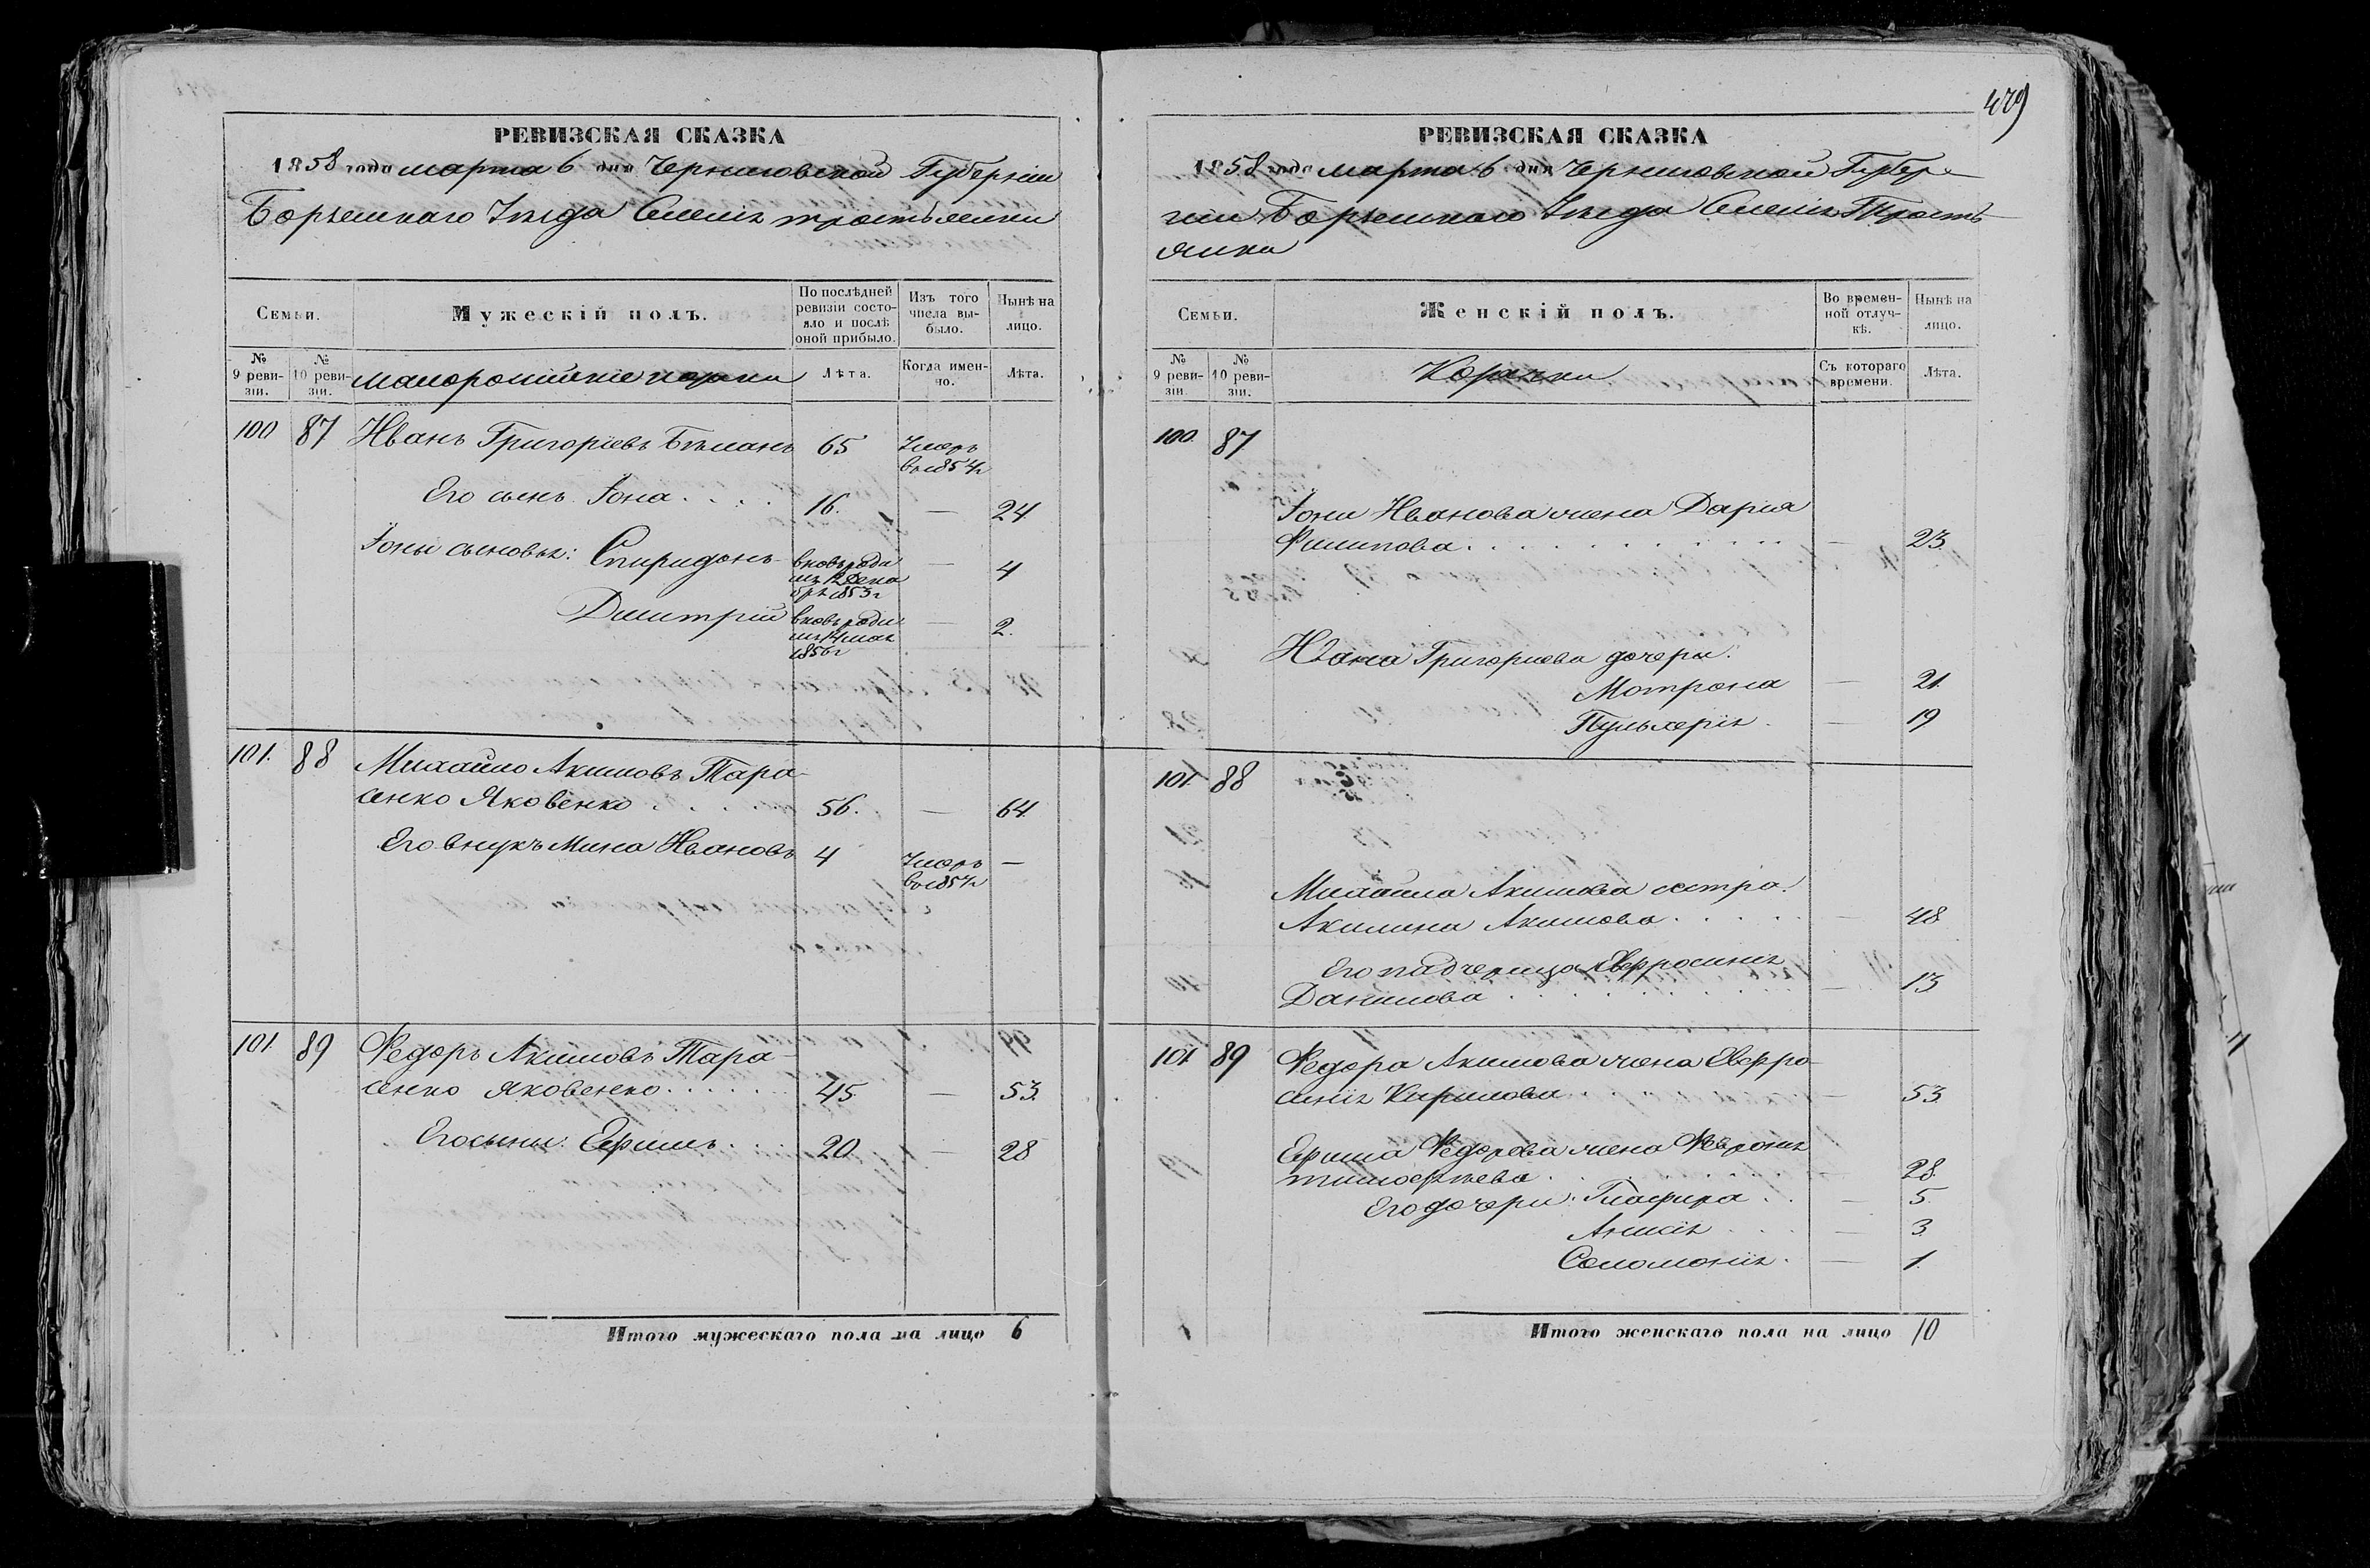 479
РЕВИЗСКАЯ СКАЗКА
1858 года марта 6 дня Черниговской Губерніи
Борзенскаго Уѣзда Селенія Тростянки
Семьи.
Мужескій полъ.
По послѣдней ревизіи состояло и послѣ оной прибыло.
Изъ того числа выбыло.
Нынѣ на лицо.
№ 9 ревизіи.
№ 10 ревизіи.
малороссійскіе козаки
Лѣта.
Когда именно.
Лѣта.
100 87 Иванъ Григоріевъ 65 Умеръ въ 1854г
Его сынъ Іона . . . . 16. — 24
Іоны сыновья: Спиридонъ вновь роди — 4
1853г
Дмитрій вновь роди — 2.
1856г
101. 88 Михайло Акимовъ Тара-
сенко Яковенко . . . . 56. — 64
Его внукъ Мина Ивановъ 4 Умеръ —
въ 1857г
101 89 Федоръ Акимовъ Тара-
сенко Яковенко . . . . . 45. — 53.
Его сыны: Ефимъ . . . 20 — 28
Итого мужескаго пола на лицо 6
РЕВИЗСКАЯ СКАЗКА
1858 года марта 6 дня Черниговской Губер-
ніи Борзенскаго Уѣзда Селенія Трост-
янки
Семьи.
Женскій полъ.
Во временной отлучкѣ.
Нынѣ на лицо.
№ 9 ревизіи.
№ 10 ревизіи.
Козачки
Съ котораго времени.
Лѣта.
100. 87
Іоны Иванова жена Дарія
Филипова . . . . . . . . . . — 23.
Ивана Григориева дочери:
Мотрона — 21.
Пульхерія . — 19
101 88
Михайла Акимова сестра:
Акилина Акимова . . . . . — 48
Его падчерица Евфросинія
Данилова . . . . . . . . . . — 13
101 89 Федора Акимова жена Евфро-
синія Кирилова . — 53.
Ефима Федорова жена Феѵронія
Тимофѣева . — 28.
Его дочери: Глафира . . — 5.
Анисія . . . — 3.
Соломонія . — 1.
Итого женскаго пола на лицо 10